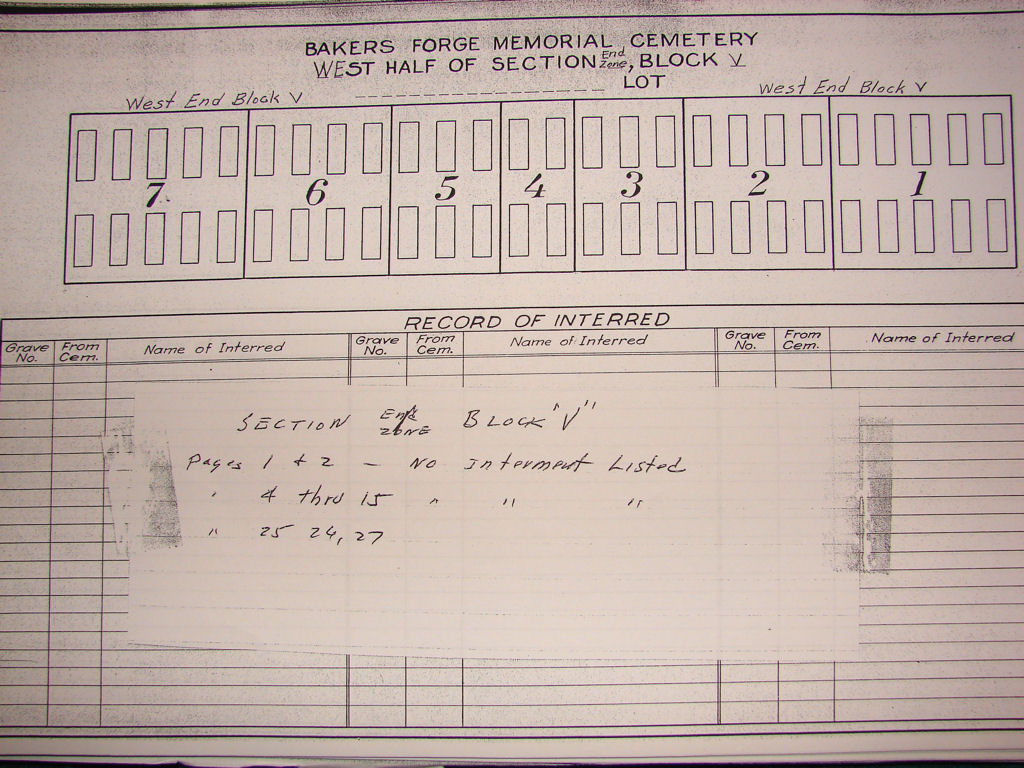 BAKERS FORGE MEMORIAL CEMETERY
WEST HALF OF SECTION End Zone, BLOCK V
LOT
West End Block V
West End Block V
7 6 5 4 3 2 1
RECORD OF INTERRED
Grave No. From Cem. Name of Interred Grave No. From Cem. Name of Interred Grave No. From Cem. Name of Interred
SECTION End ZONE BLOCK "V"
Pages 1 + 2 — No Interment Listed
" 4 thru 15 " " "
" 25 24, 27